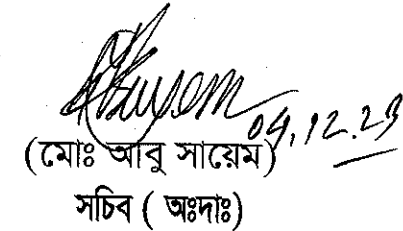 04.12.23
(মোঃ আবু সায়েম)
সচিব ( অঃদাঃ)